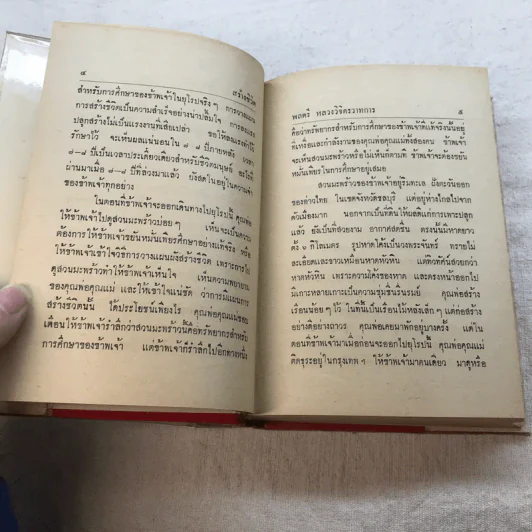 ๔ สร้างชีวิต
สำหรับการศึกษาของข้าพเจ้าในยุโรปจริงๆ การวางแผน
การสร้างชีวิตเป็นความสำเร็จอย่างน่าปลื้มใจ การลงแรง
ปลูกสร้างไม่เป็นแรงงานที่เสียเปล่า ขอให้ลงแรงสร้างไว้
รักษาไว้ จะเห็นผลแน่นอนใน ๗ ๘ ปีภายหลัง เวลา
๗–๘ ปีเป็นเวลาประเดี๋ยวเดียวสำหรับชีวิตมนุษย์ อะไรที่
ผ่านมาเมื่อ ๗–๘ ปีที่ล่วงมาแล้ว ยังสดในอยู่ในความจำ
ของข้าพเจ้าทุกอย่าง
ในตอนที่ข้าพเจ้าจะออกเดินทางไปยุโรปนี้ คุณพ่อ
ให้ข้าพเจ้าไปดูสวนมะพร้าวบ่อยๆ เห็นจะเป็นความ
ต้องการให้ข้าพเจ้าขยันหมั่นเพียรศึกษาอย่างแท้จริง หรือ
ให้ข้าพเจ้าเข้าใจวิธีการวางแผนผังสร้างชีวิต เพราะการไป
ดูสวนมะพร้าวทำให้ข้าพเจ้าเห็นใจ เห็นความพยายาม
ของคุณพ่อคุณแม่ และให้เข้าใจแน่ชัด ว่าการมีแผนการ
สร้างชีวิตนั้น ได้ประโยชน์เพียงไร คุณพ่อคุณแม่ชอบ
เตือนให้ข้าพเจ้ารำลึกว่าสวนมะพร้าวนี้คือทรัพยากรสำหรับ
การศึกษาของข้าพเจ้า แต่ข้าพเจ้าก็รำลึกไปอีกทางหนึ่ง
พลตรี หลวงวิจิตรวาทการ ๕
คือว่าทรัพยากรสำหรับการศึกษาของข้าพเจ้าที่แท้จริงนั้นอยู่
ที่เหงื่อและกำลังงานของคุณพ่อคุณแม่ทั้งสองคน ข้าพเจ้า
จะเห็นสวนมะพร้าวหรือไม่เห็นก็ตามที ข้าพเจ้าจะต้องขยัน
หมั่นเพียรในการศึกษาอยู่เสมอ
สวนมะพร้าวของข้าพเจ้าอยู่ริมทะเล ฝั่งตะวันออก
ของอ่าวไทย ในเขตจังหวัดชลบุรี แต่อยู่ห่างไกลไปจาก
ตัวเมืองมาก นอกจากเป็นที่ดินให้ผลดีแก่การเพาะปลูก
แล้ว ยังเป็นที่สวยงาม อากาศสดชื่น ตรงนั้นมีหาดยาว
ตั้ง ๖ กิโลเมตร รูปหาดโค้งเป็นวงพระจันทร์ ทรายไม่
ละเอียดและขาวเหมือนหาดหัวหิน แต่ทิวทัศน์สวยกว่า
หาดหัวหิน เพราะความโค้งของหาด และตรงหน้าออกไป
มีเกาะหลายเกาะเป็นความชุ่มชื่นรื่นรมย์ คุณพ่อสร้าง
เรือนน้อยๆ ไว้ ในที่นี้เป็นเรือนไม้หลังเล็กๆ แต่ก่อสร้าง
อย่างดีอย่างถาวร คุณพ่อเคยมาพักอยู่บางครั้ง แต่ใน
ตอนที่ข้าพเจ้ามาเมื่อก่อนจะออกไปยุโรปนี้ คุณพ่อคุณแม่
ติดธุระอยู่ในกรุงเทพฯ ให้ข้าพเจ้ามาคนเดียว มาดูหรือ